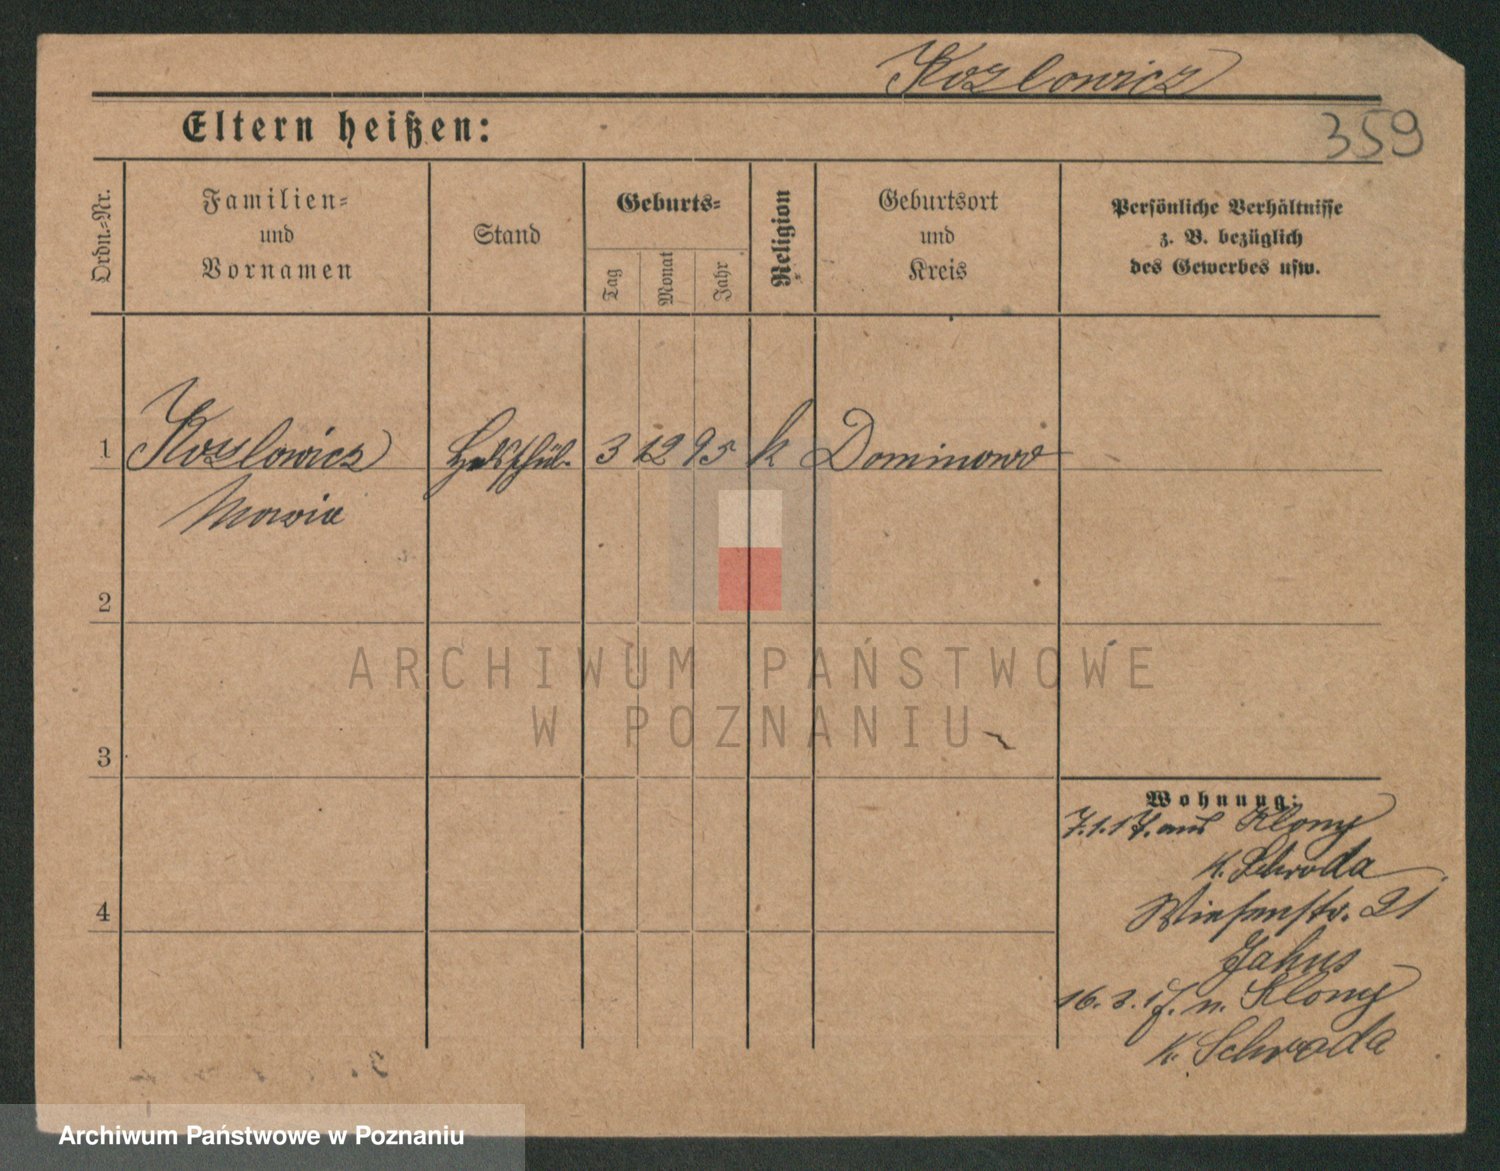 Kozlowicz
359
Eltern heißen:
Ordn.-Nr.
Familien-
und
Vornamen
Stand
Geburts-
Tag
Monat
Jahr
Religion
Geburtsort
und
Kreis
Persönliche Verhältnisse
z. B. bezüglich
des Gewerbes usw.
1 Kozlowicz 3 12 95 k Dominowo
Maria
2
3
4
Wohnung:
7.1.17. aus Klony
K. Schroda
Wiesenstr. 21
16.3.17. n. Klony
K. Schroda
ARCHIWUM PAŃSTWOWE
W POZNANIU
Archiwum Państwowe w Poznaniu